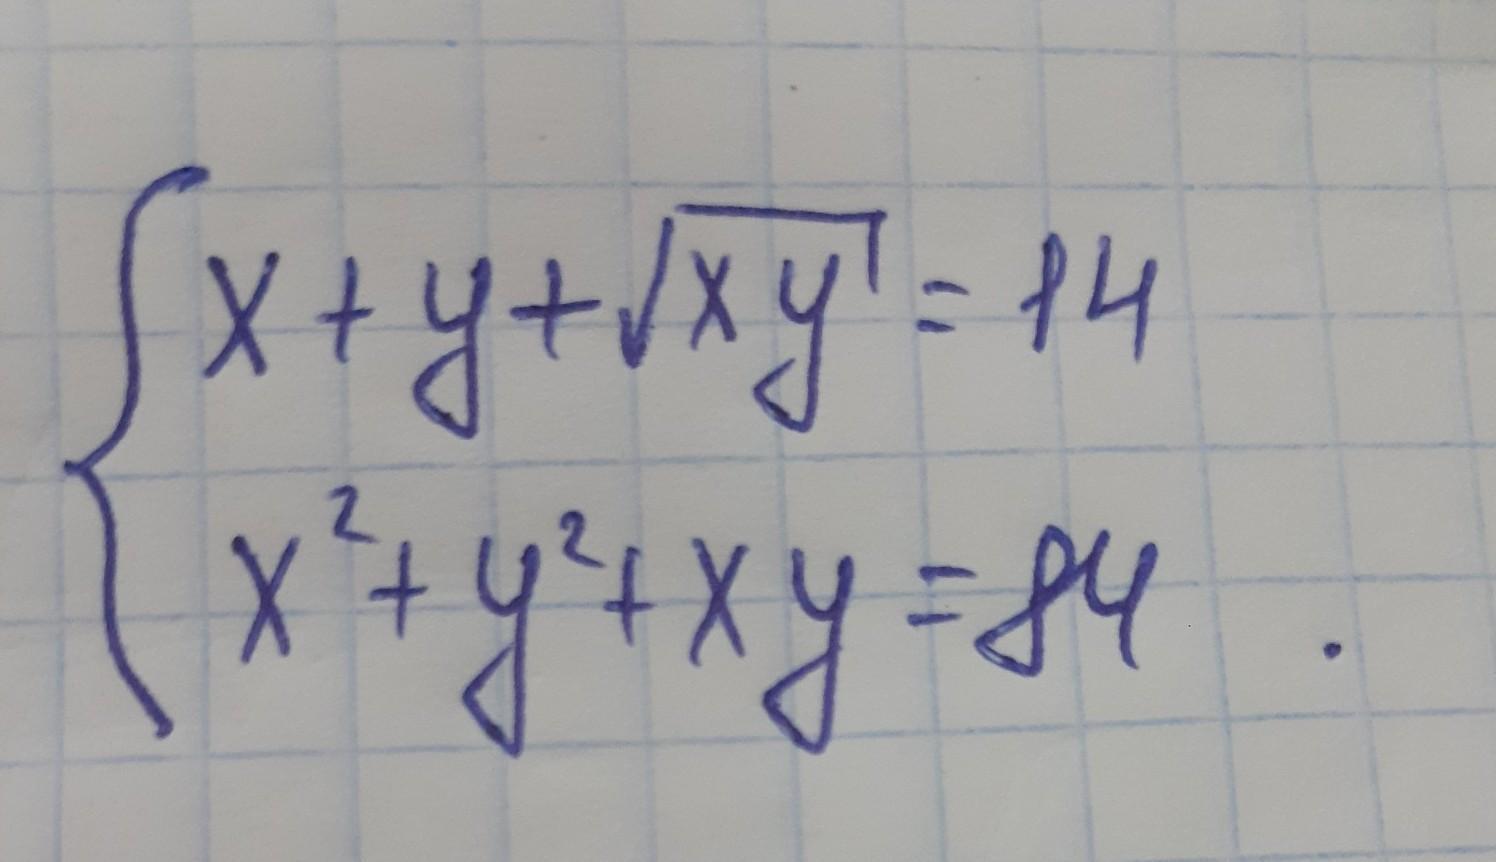 x + y + √xy = 14
x² + y² + xy = 84.